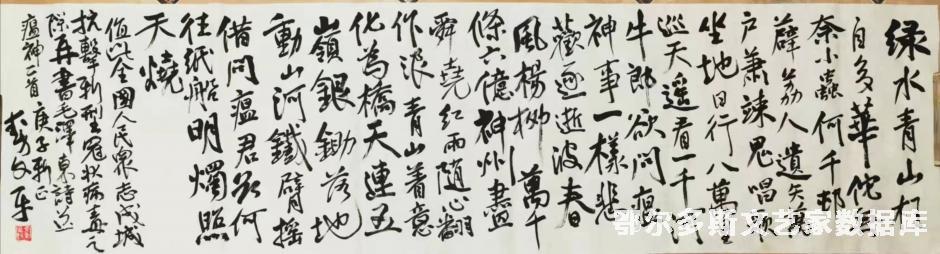 绿水青山枉
自多華佗无
奈小蟲何千邨
薜荔人遗矢
户萧疎鬼唱歌
坐地日行八萬里
巡天遥看一千河
牛郎欲问瘟
神事一樣悲
歡逐逝波春
风杨柳萬千
條六億神州盡
舜堯红雨随心翻
作浪青山着意
化為橋天連五
嶺銀鋤落地
動山河鐵臂摇
借问瘟君欲何
往纸船明燭照
天燒
值此全國人民衆志成城
抗擊新型冠狀病毒之
際再書毛澤東詩送
瘟神一首 庚子新正
鄂尔多斯文艺家数据库